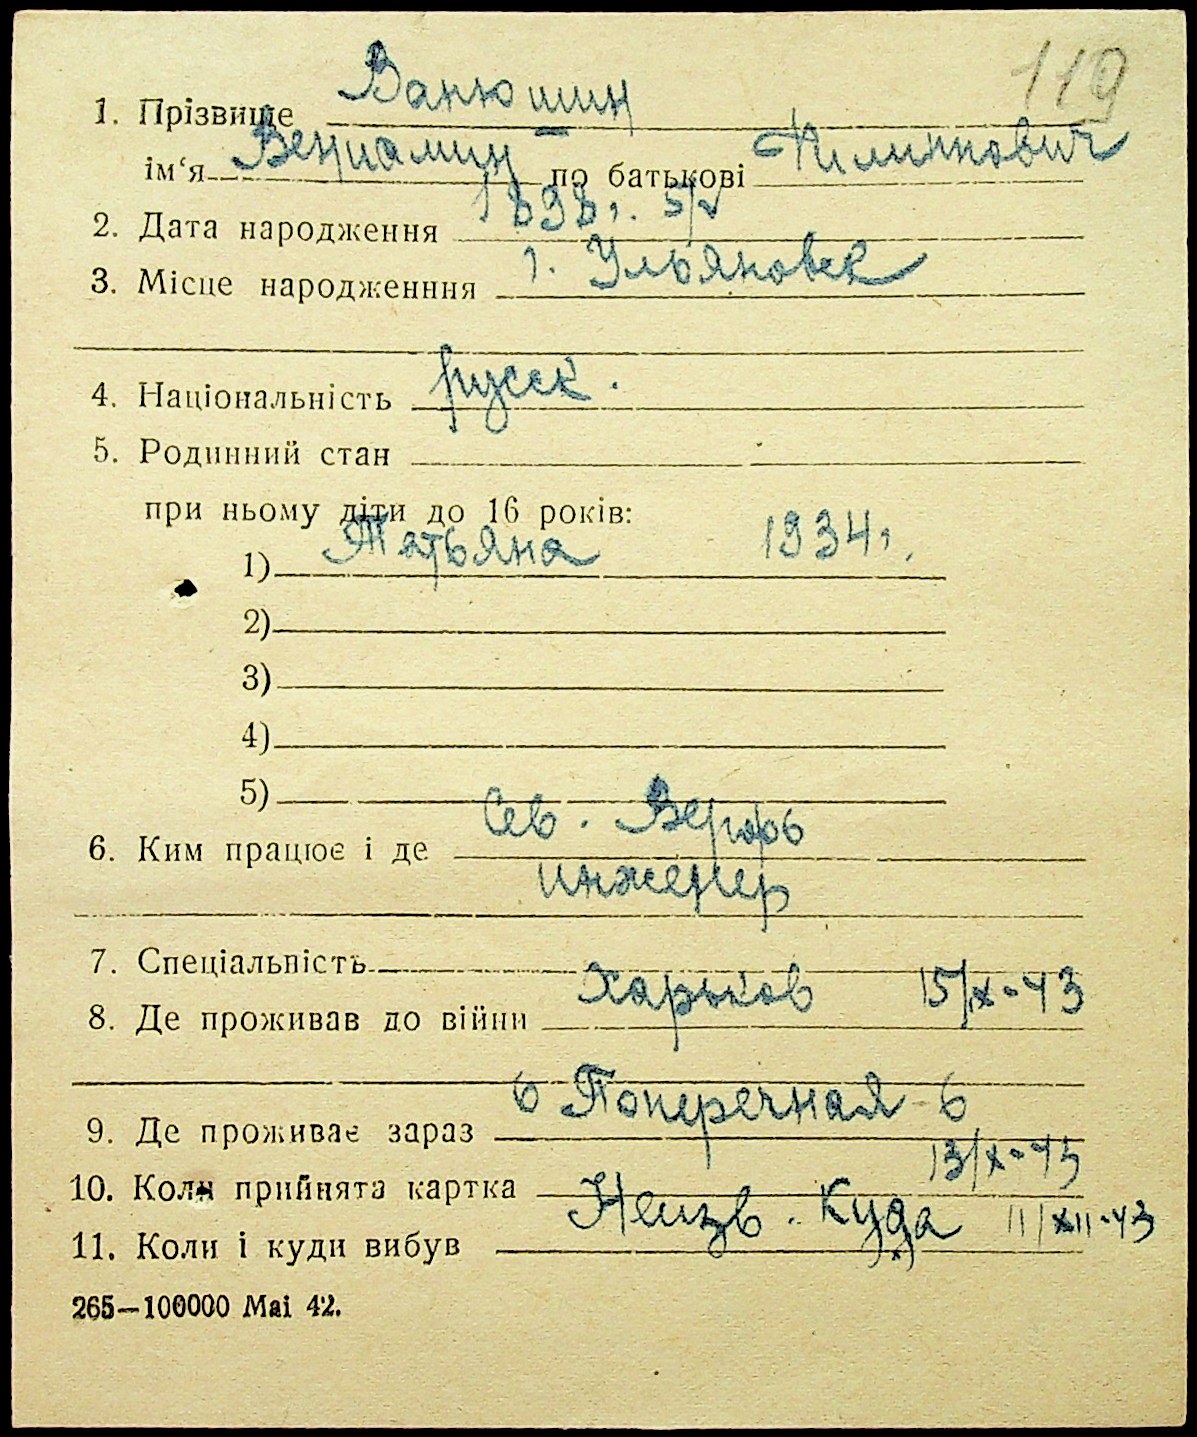 119
1. Прізвище Ванюшин
ім‘я Вениамин по батькові Филиппович
2. Дата народження 1898г. 5/V
3. Місце народженння г. Ульяновск
4. Національність русск.
5. Родинний стан
при ньому діти до 16 років:
1) Татьяна 1934г.
2)
3)
4)
5)
6. Ким працює і де Сев. Верфь
инженер
7. Спеціальність
8. Де проживав до війни Харьков 15/X-43
9. Де проживає зараз 6 Поперечная 6
10. Коли прийнята картка 13/X-43
11. Коли і куди вибув Неизв. куда 11/XII-43
265—100000 Mai 42.